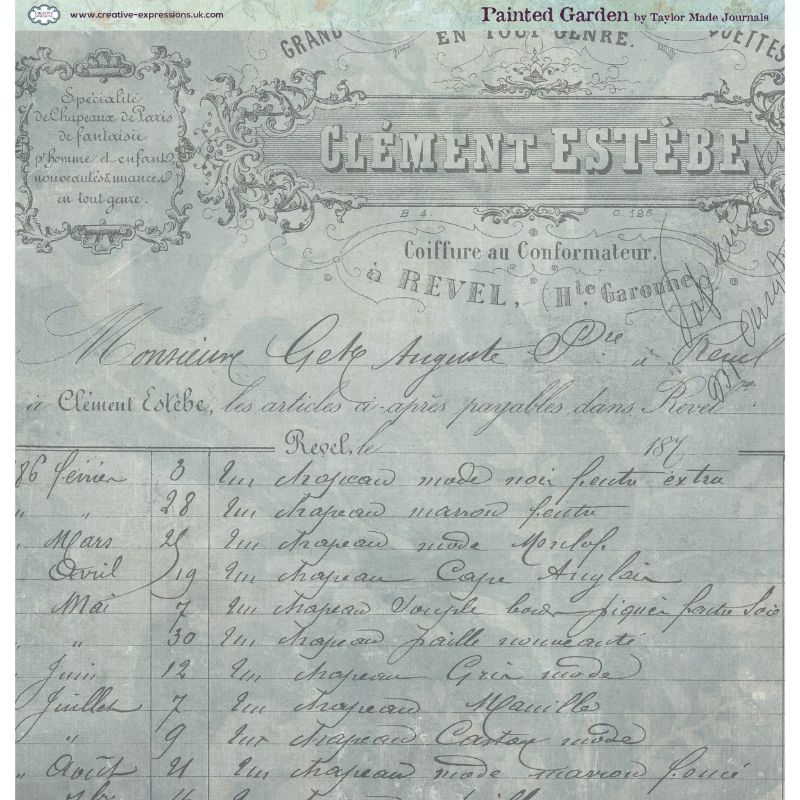 www.creative-expressions.uk.com
Painted Garden by Taylor Made Journals
GRAND
EN TOUT GENRE.
Spécialité
de Chapeaux de Paris
de fantaisie
pr homme et enfants
nouveautés & nuances
en tout genre.
CLÉMENT ESTÈBE
B 4.
C 126
Coiffure au Conformateur.
à REVEL, Hte Garonne
Monsieur Auguste à Revel
à Clément Estèbe, les articles ci-après payables dans Revel
Revel, le 187
86 février 3 Un chapeau mode noir feutre extra
" " 28 Un chapeau marron feutre
Mars Un chapeau mode
Avril 19 Un chapeau Cape Anglais
Mai 7 Un chapeau Souple bord piqué feutre Soie
" 30 Un chapeau paille nouveauté
Juin 12 Un chapeau Gris mode
Juillet 7 Un chapeau
" 9 Un chapeau Castor mode
Août Un chapeau mode marron foncé